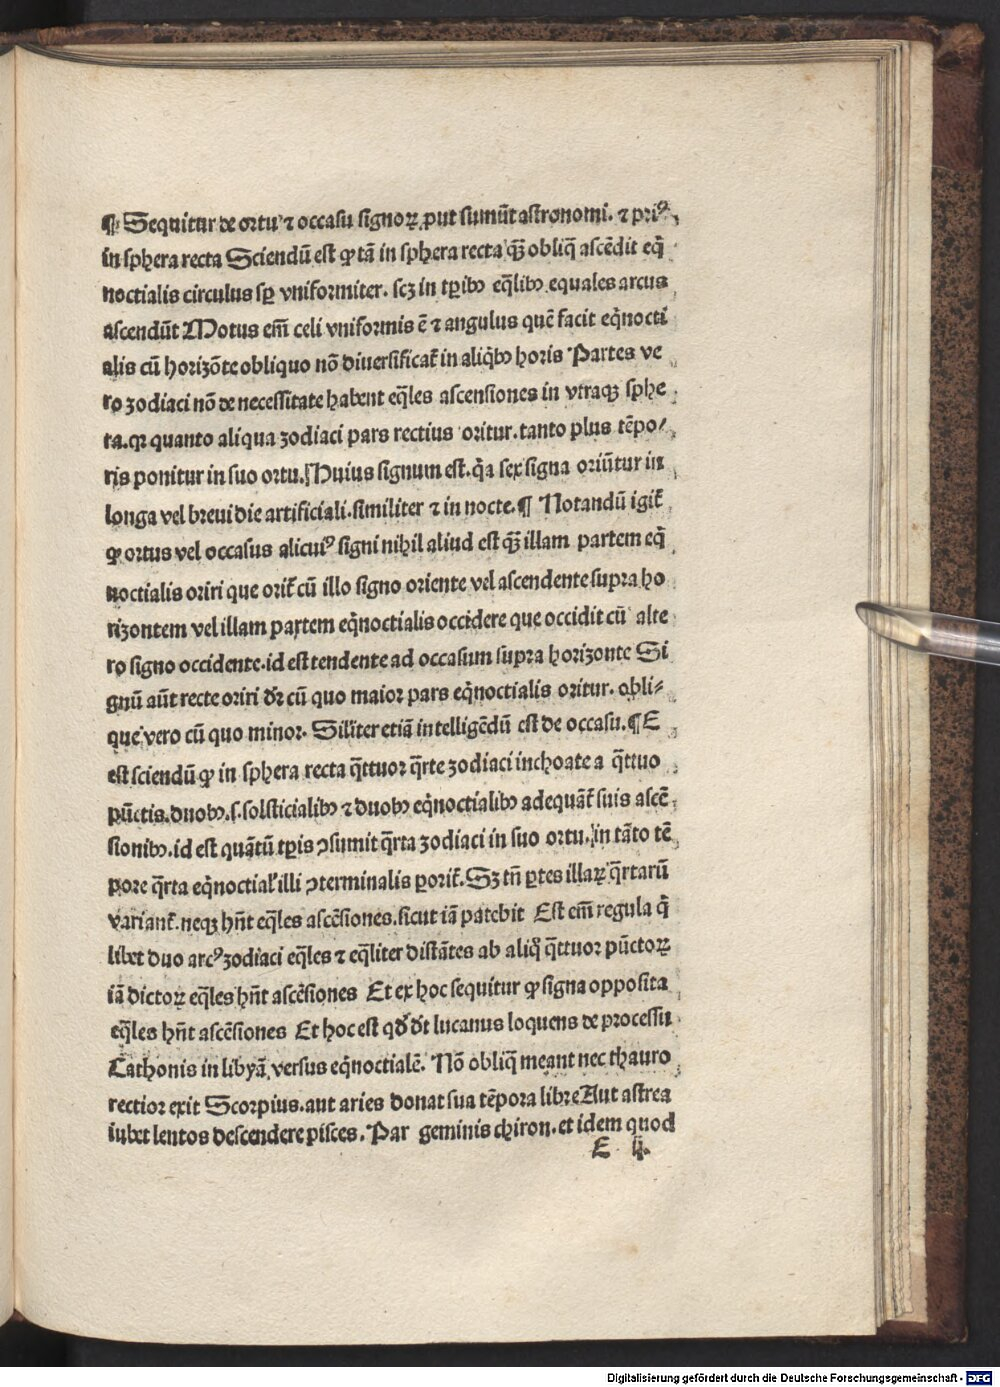 ¶ Sequitur de ortu ⁊ occasu signoꝝ ꝓut sumũt astronomi. ⁊ priꝰ
in sphera recta Sciendũ est ꝙ tã in sphera recta qᷓꝫ obliq̃ ascẽdit eq̃
noctialis circulus sꝑ vniformiter. scꝫ in tꝑibꝰ eq̃libꝰ equales arcus
ascendũt Motus em̃ celi vniformis ẽ ⁊ angulus quẽ facit eq̃nocti
alis cũ horizõte obliquo nõ diuersificat̃ in aliq̃bꝰ horis Partes ve
ro zodiaci nõ de necessitate habent eq̃les ascensiones in vtraqꝫ sphe
ra. qꝛ quanto aliqua zodiaci pars rectius oritur. tanto plus tẽpo⸗
ris ponitur in suo ortu. Huius signum est. q̃a sex signa oriũtur in
longa vel breui die artificiali. similiter ⁊ in nocte. ¶ Notandũ igit̃
ꝙ ortus vel occasus alicuiꝰ signi nihil aliud est qᷓꝫ illam partem eq̃
noctialis oriri que orit̃ cũ illo signo oriente vel ascendente supra ho
rizontem vel illam partem eq̃noctialis occidere que occidit cũ alte
ro signo occidente. id est tendente ad occasum supra horizonte Si
gnũ aũt recte oriri dr̃ cũ quo maior pars eq̃noctialis oritur. obli⸗
que vero cũ quo minor. Siliter etiã intelligẽdũ est de occasu. ¶ E
est sciendũ ꝙ in sphera recta q̃ttuor q̃rte zodiaci inchoate a q̃ttuo
pũctis. duobꝰ. s. solsticialibꝰ ⁊ duobꝰ eq̃noctialibꝰ adequãt̃ suis ascẽ
sionibꝰ. id est quãtũ tꝑis ꝯsumit q̃rta zodiaci in suo ortu. in tãto tẽ
pore q̃rta eq̃noctial̃ illi ꝯterminalis ꝑorit̃. Sꝫ tñ ꝑtes illaꝝ q̃rtarũ
variant̃. neqꝫ hñt eq̃les ascẽsiones. sicut iã patebit Est em̃ regula q̃
libet duo arcꝰ zodiaci eq̃les ⁊ eq̃liter distãtes ab aliq̃ q̃ttuor pũctoꝝ
iã dictoꝝ eq̃les hñt ascẽsiones Et ex hoc sequitur ꝙ signa opposita
eq̃les hñt ascẽsiones Et hoc est qđ dt̃ lucanus loquens de processu
Cathonis in libyã versus eq̃noctialẽ. Nõ obliq̃ meant nec thauro
rectior exit Scorpius. aut aries donat sua tẽpora libre Aut astrea
iubet lentos descendere pisces. Par geminis chiron. et idem quod
E ij.
Digitalisierung gefördert durch die Deutsche Forschungsgemeinschaft - DFG